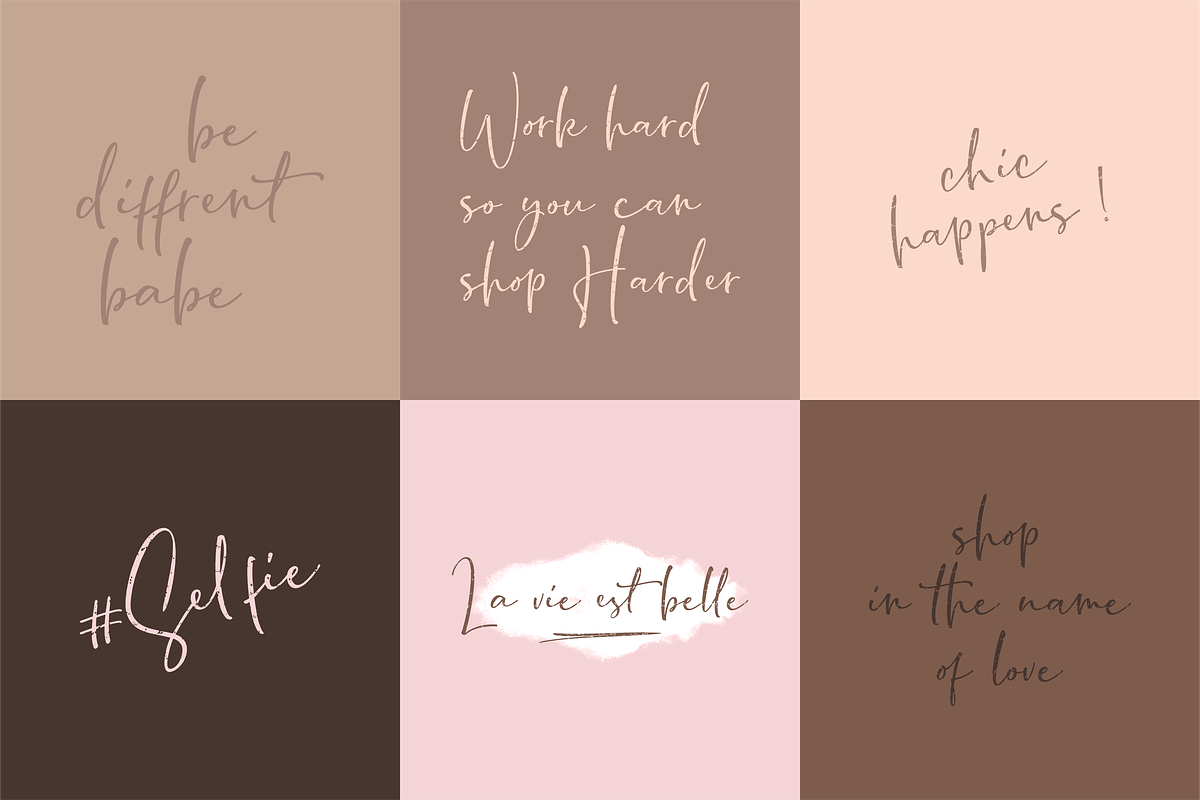 be
diffrent
babe
Work hard
so you can
shop Harder
chic
happens !
#Selfie
La vie est belle
shop
in the name
of love